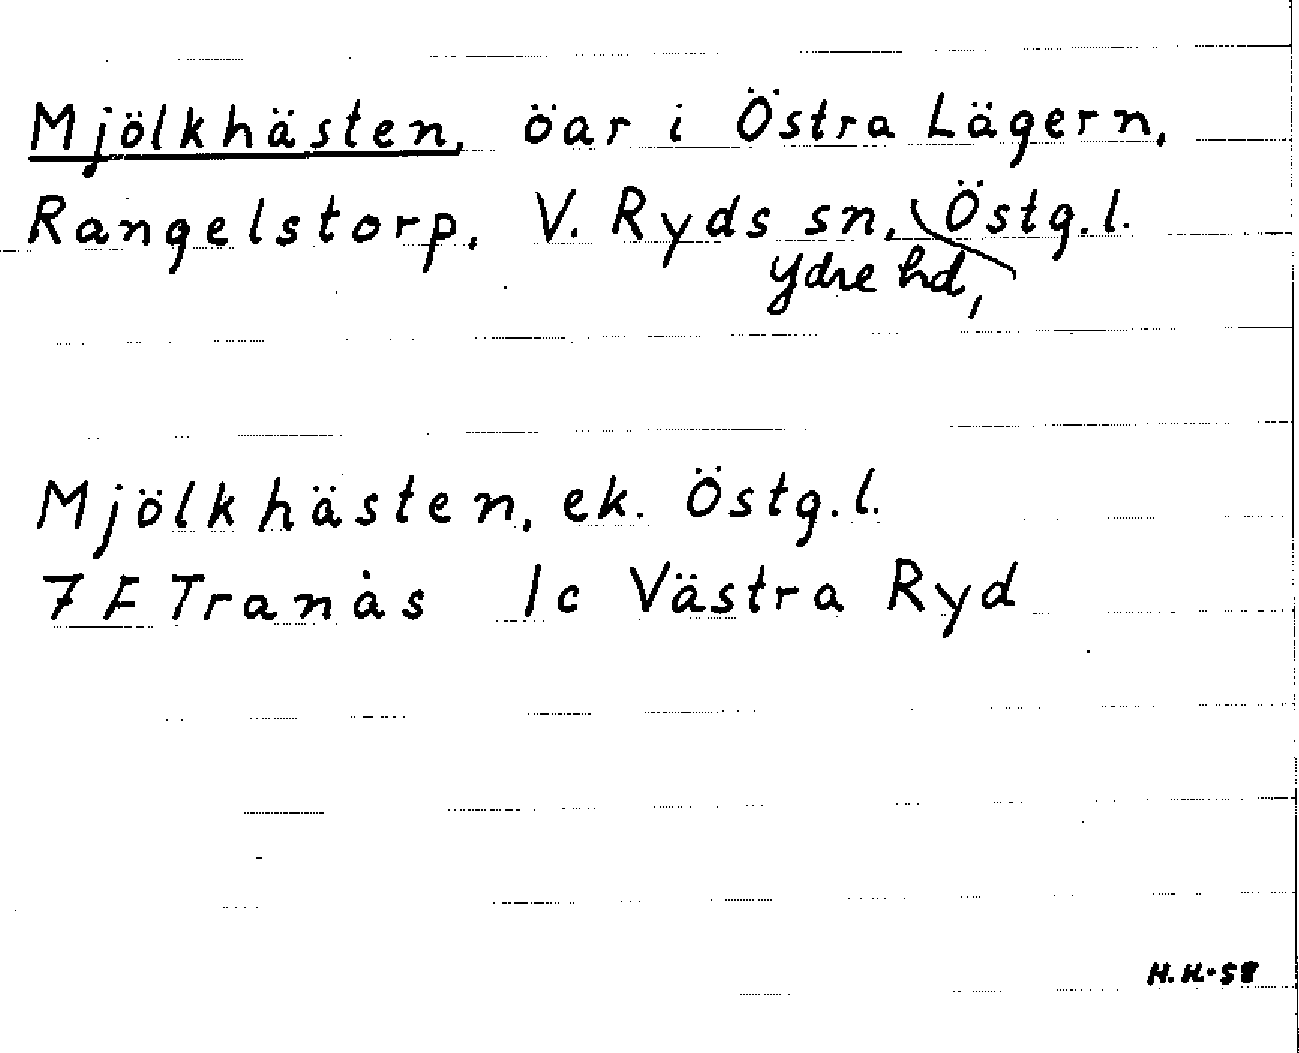 Mjölkhästen, öar i Östra Lägern,
Rangelstorp. V. Ryds sn, Östg.l.
Ydre hd,
Mjölkhästen, ek. Östg.l.
7 F Tranås 1c Västra Ryd
H.H-58